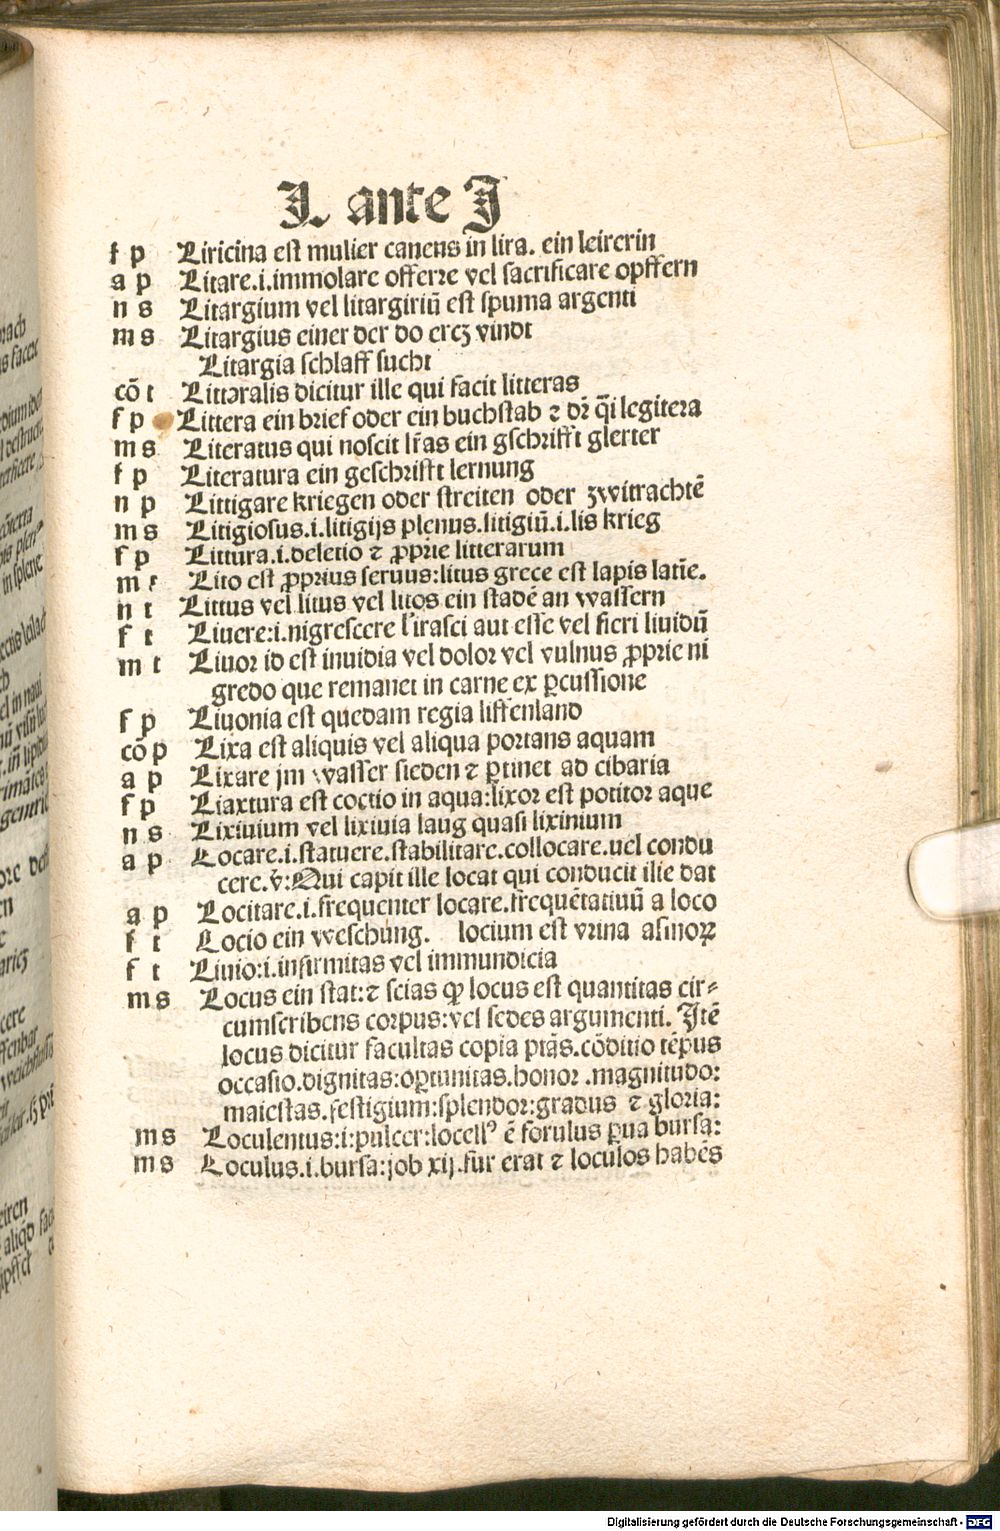 L ante I
f p Liricina est mulier canens in lira. ein leirerin
a p Litare.i.immolare offerre vel sacrificare opffern
n s Litargium vel litargiriū est spuma argenti
m s Litargius einer der do ercz vindt
Litargia schlaff sucht
cō t Litteralis dicitur ille qui facit litteras
f p Littera ein brief oder ein buchstab ⁊ dr̄ q̄si legitera
m s Literatus qui noscit lr̄as ein gschrifft glerter
f p Literatura ein geschrifft lernung
n p Littigare kriegen oder streiten oder zwitrachtē
m s Litigiosus.i.litigijs plenus.litigiū.i.lis krieg
f p Littura.i.deletio ⁊ ꝓprie litterarum
m t Lito est ꝓprius seruus:litus grece est lapis latīe.
n t Littus vel litus vel litos ein stadē an wassern
f t Liuere:i.nigrescere l'irasci aut esse vel fieri liuidū
m t Liuor id est inuidia vel dolor vel vulnus ꝓprie ni
gredo que remanet in carne ex ꝑcussione
f p Liuonia est quedam regia liffenland
cō p Lixa est aliquis vel aliqua portans aquam
a p Lixare jm wasser sieden ⁊ ꝑtinet ad cibaria
f p Liaxtura est coctio in aqua:lixor est potitor aque
n s Lixiuium vel lixiuia laug quasi lixinium
a p Locare.i.statuere.stabilitare.collocare.uel condu
cere.v̄:Qui capit ille locat qui conducit ille dat
a p Locitare.i.frequenter locare.frequētatiuū a loco
f t Locio ein weschung. locium est vrina asinoꝝ
f t Liuio:i.infirmitas vel immundicia
m s Locus ein stat:⁊ scias ꝙ locus est quantitas cir⸗
cumscribens corpus:vel sedes argumenti. Itē
locus dicitur facultas copia ptās.cōditio tēpus
occasio.dignitas:oꝑtunitas.honor .magnitudo:
maiestas.festigium:splendor:gradus ⁊ gloria:
m s Loculentus:i:pulcer:locell⁹ ē forulus ꝑua bursa:
m s Loculus.i.bursa:job xij.fur erat ⁊ loculos habēs
Digitalisierung gefördert durch die Deutsche Forschungsgemeinschaft - DFG